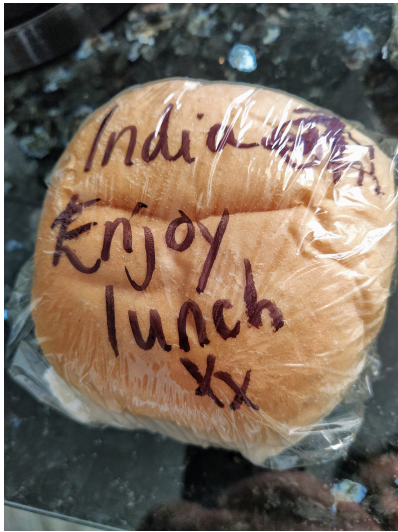 India
Enjoy
lunch
xx